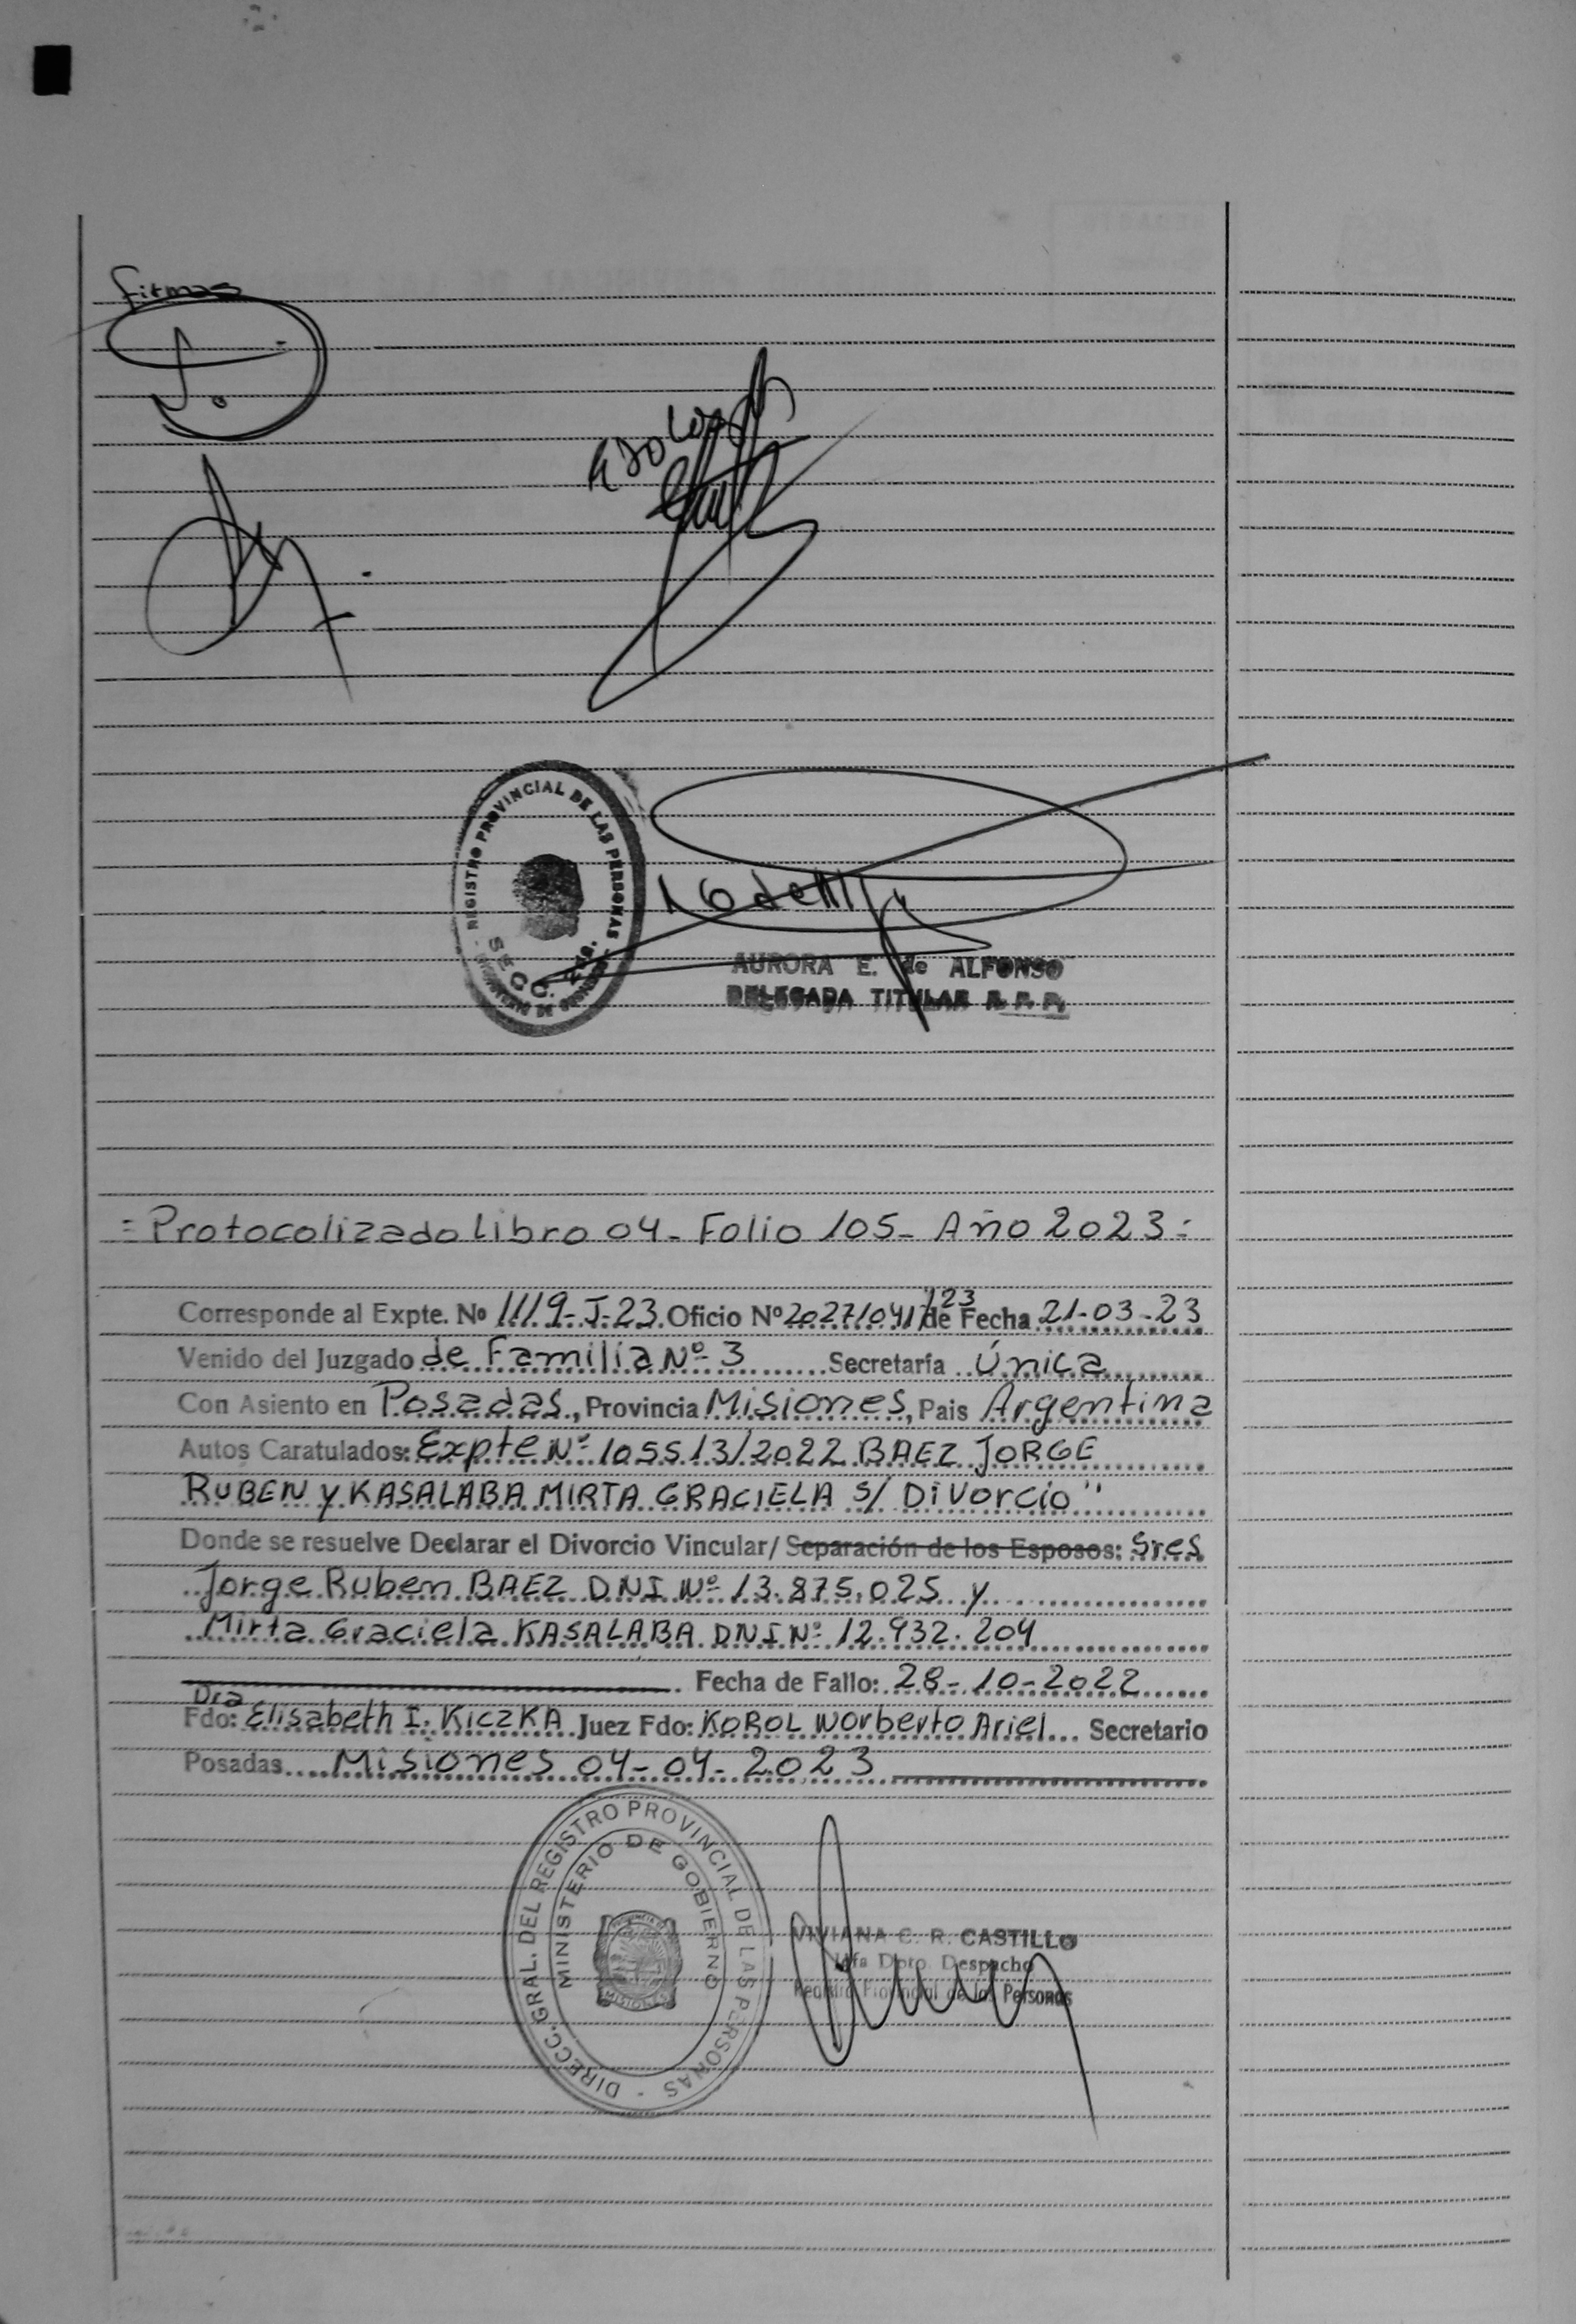 firmas
REGISTRO PROVINCIAL DE LAS PERSONAS
SECC.
AURORA E. de ALFONSO
DELEGADA TITULAR R. P. P.
= Protocolizado Libro 04 - Folio 105 - Año 2023 =
Corresponde al Expte. Nº 1119-J-23 Oficio Nº 2027/041/123 de Fecha 21-03-23
Venido del Juzgado de Familia Nº 3 Secretaría Única
Con Asiento en Posadas, Provincia Misiones, Pais Argentina
Autos Caratulados: Expte Nº 105513/2022 BAEZ JORGE
RUBEN y KASALABA MIRTA GRACIELA S/ Divorcio"
Donde se resuelve Declarar el Divorcio Vincular/ Separación de los Esposos: Sres
Jorge Ruben BAEZ DNI Nº 13.875.025 y
Mirta Graciela KASALABA DNI Nº 12.932.204
Fecha de Fallo: 28-10-2022
Dra
Fdo: Elisabeth I. KiczKA Juez Fdo: KOROL Norberto Ariel Secretario
Posadas Misiones 04-04-2023
DIRECC. GRAL. DEL REGISTRO PROVINCIAL DE LAS PERSONAS -
MINISTERIO DE GOBIERNO
PROVINCIA DE
MISIONES
VIVIANA C. R. CASTILLO
Jefa Dpto. Despacho
Registro Provincial de las Personas